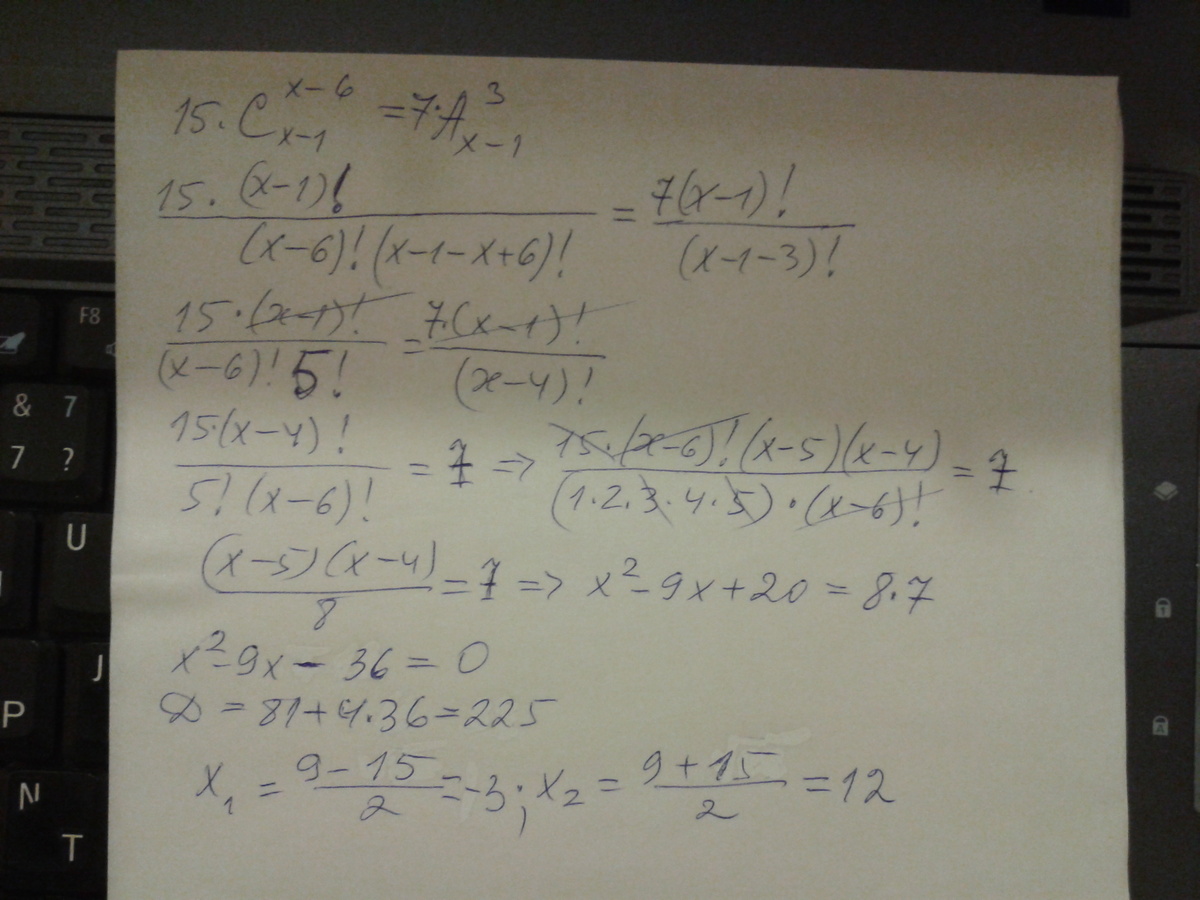 15·C_{x-1}^{x-6} = 7·A_{x-1}^{3}
15·(x-1)! / (x-6)!(x-1-x+6)! = 7(x-1)! / (x-1-3)!
15·(x-1)! / (x-6)! 5! = 7·(x-1)! / (x-4)!
15·(x-4)! / 5!(x-6)! = 7 => 15·(x-6)!(x-5)(x-4) / (1·2·3·4·5)·(x-6)! = 7
(x-5)(x-4) / 8 = 7 => x²-9x+20 = 8·7
x²-9x-36 = 0
D = 81+4·36=225
x₁ = (9-15)/2 = -3; x₂ = (9+15)/2 = 12
F8
& 7
7 ?
U
J
P
N
T